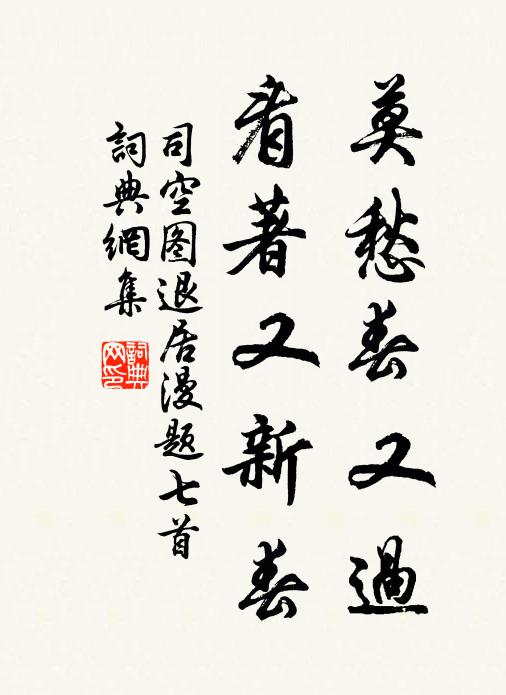 莫愁春又過
看著又新春
司空图退居漫题七首
詞典網集
詞典
网印